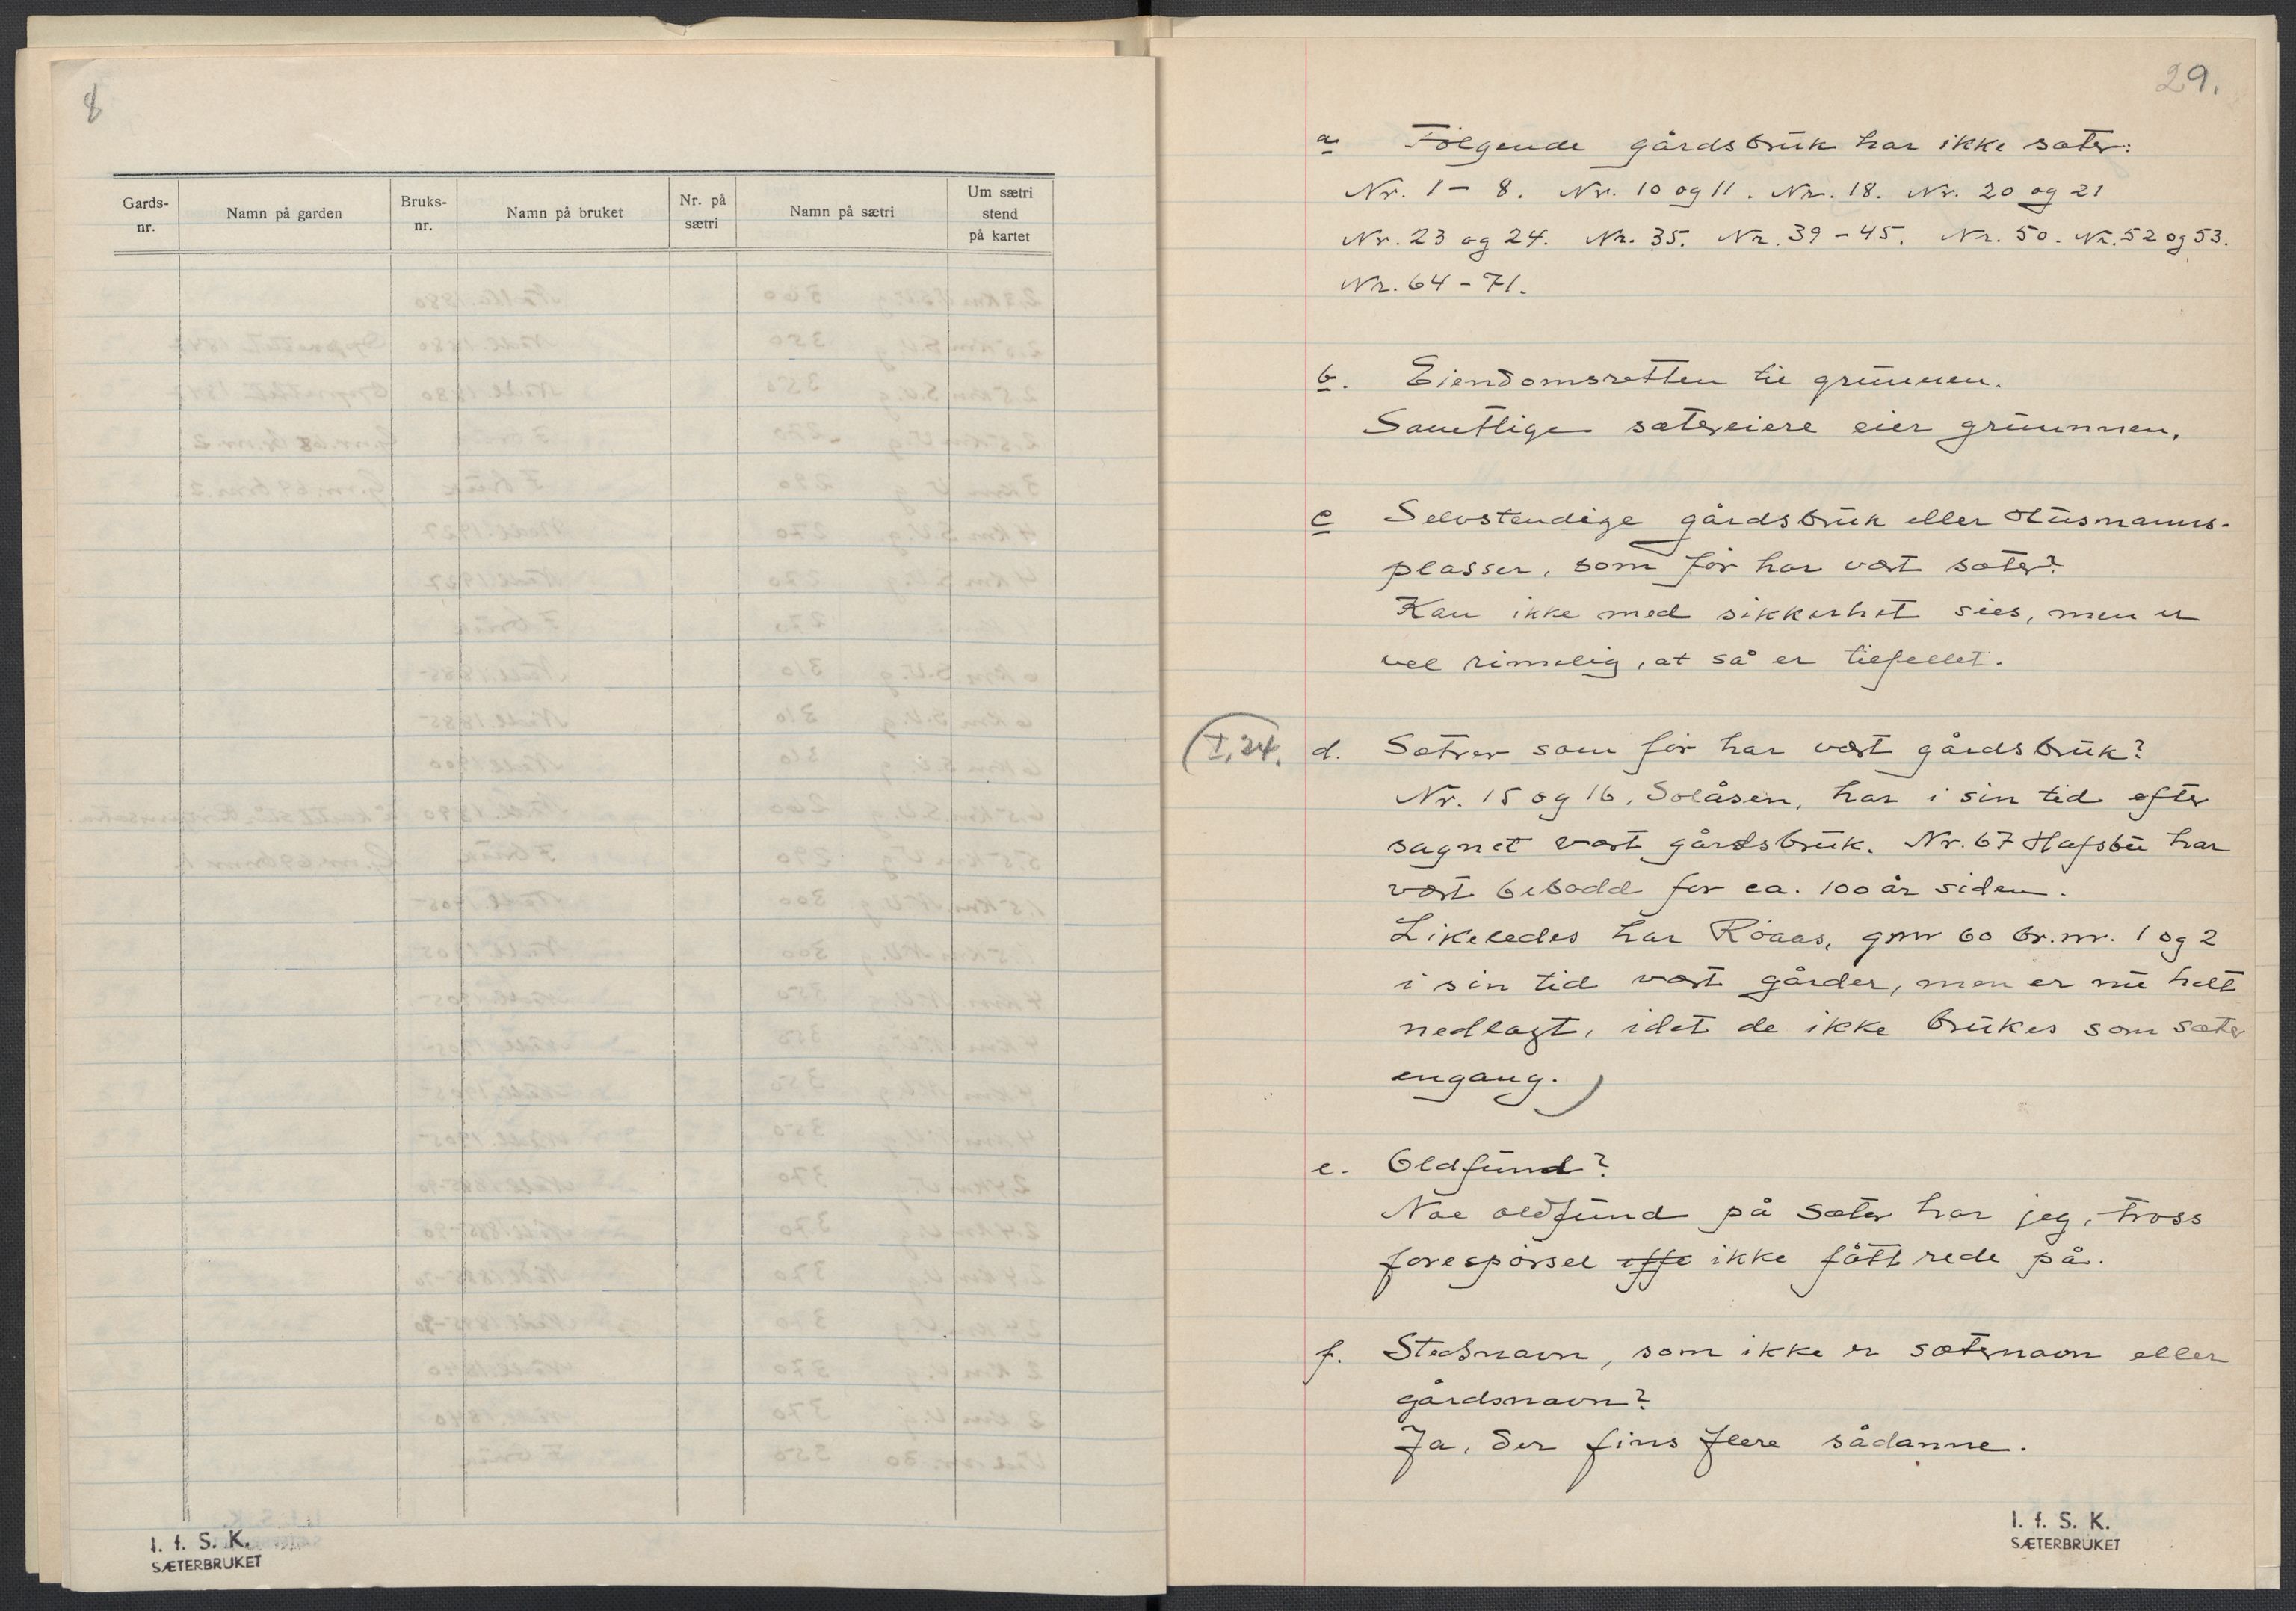 8
Gards-
nr.
Namn på garden
Bruks-
nr.
Namn på bruket
Nr. på
sætri
Namn på sætri
Um sætri
stend
på kartet
I. f. S. K.
SÆTERBRUKET
29.
a Følgende gårdsbruk har ikke sæter:
Nr. 1 - 8. Nr. 10 og 11. Nr. 18. Nr. 20 og 21
Nr. 23 og 24. Nr. 35. Nr. 39 - 45. Nr. 50. Nr. 52 og 53.
Nr. 64 - 71.
b. Eiendomsretten til grunnen.
Samtlige sætereiere eier grunnen.
c Selvstendige gårdsbruk eller Husmanns-
plasser, som før har vært sæter?
Kan ikke med sikkerhet sies, men er
vel rimelig, at så er tilfellet.
(I, 24. d. Sætrer som før har vært gårdsbruk?
Nr. 15 og 16, Solåsen, har i sin tid efter
sagnet vært gårdsbruk. Nr. 67 Hafsbu har
vært bebodd for ca. 100 år siden.
Likeledes har Röaas, gnr 60 br.nr. 1 og 2
i sin tid vært gårder, men er nu helt
nedlagt, idet de ikke brukes som sæter
engang.)
e. Oldfund?
Noe oldfund på sæter har jeg, tross
forespørsel ikke fått rede på.
f. Stedsnavn, som ikke er sæternavn eller
gårdsnavn?
Ja, der fins flere sådanne.
I. f. S. K.
SÆTERBRUKET